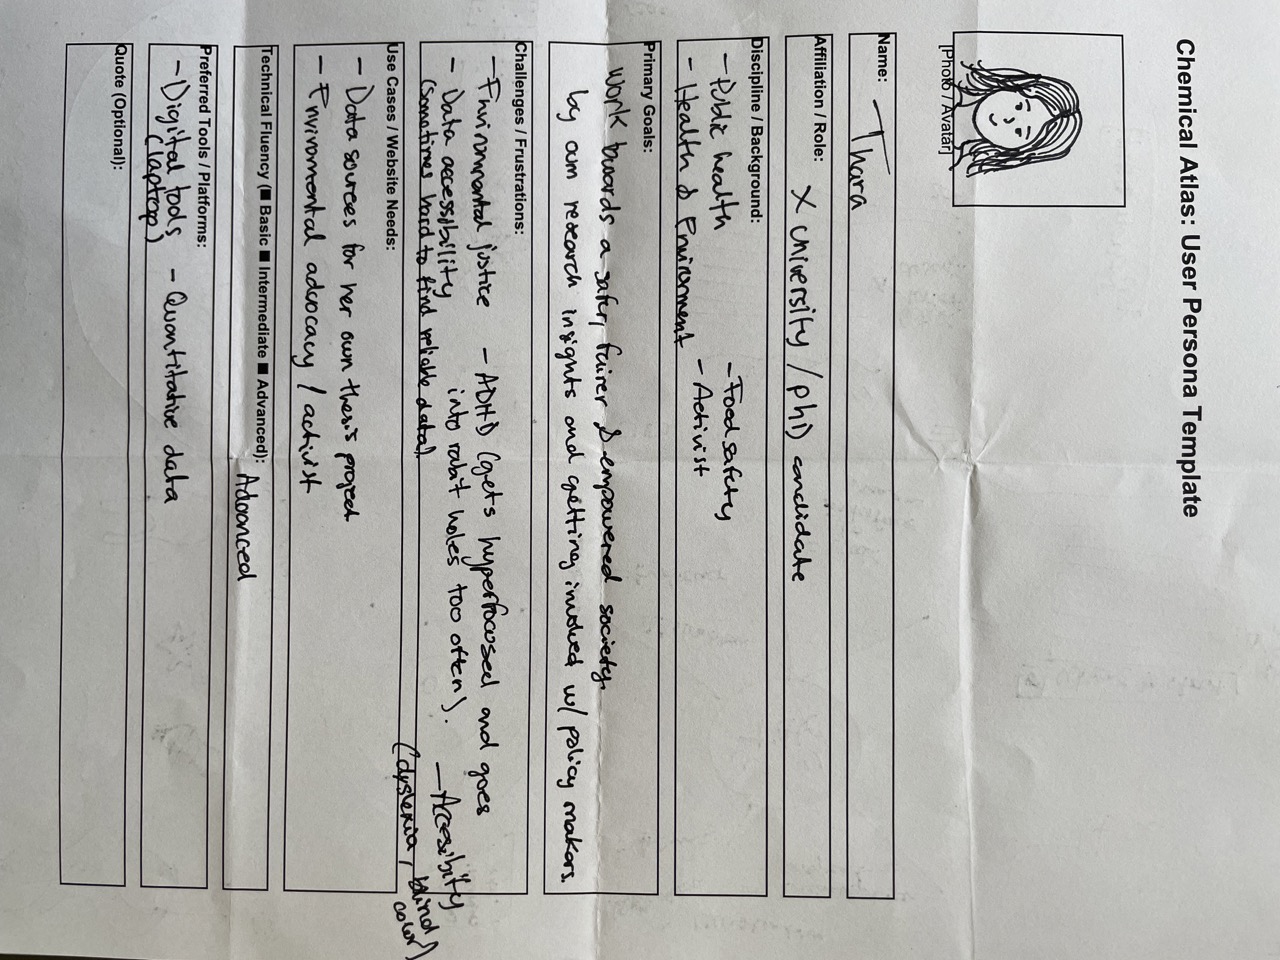 Chemical Atlas: User Persona Template
[Photo / Avatar]
Name:
Thara
Affiliation / Role:
X University / PhD candidate
Discipline / Background:
- Public health
- Health & Enviroment
- Food safety
- Activist
Primary Goals:
Work towards a safer, fairer & empowered society.
by own research insights and getting involved w/ policy makers.
Challenges / Frustrations:
- Environmental justice
- Data accessibility
(sometimes hard to find reliable data).
- ADHD (gets hyperfocused and goes
into rabit holes too often).
- Accesibity
(dyslexia, blind
color)
Use Cases / Website Needs:
- Data sources for her own thesis project
- Enviromental advocacy / activist
Technical Fluency (■ Basic ■ Intermediate ■ Advanced):
Advanced
Preferred Tools / Platforms:
- Digital tools
(laptop)
- Quantitative data
Quote (Optional):